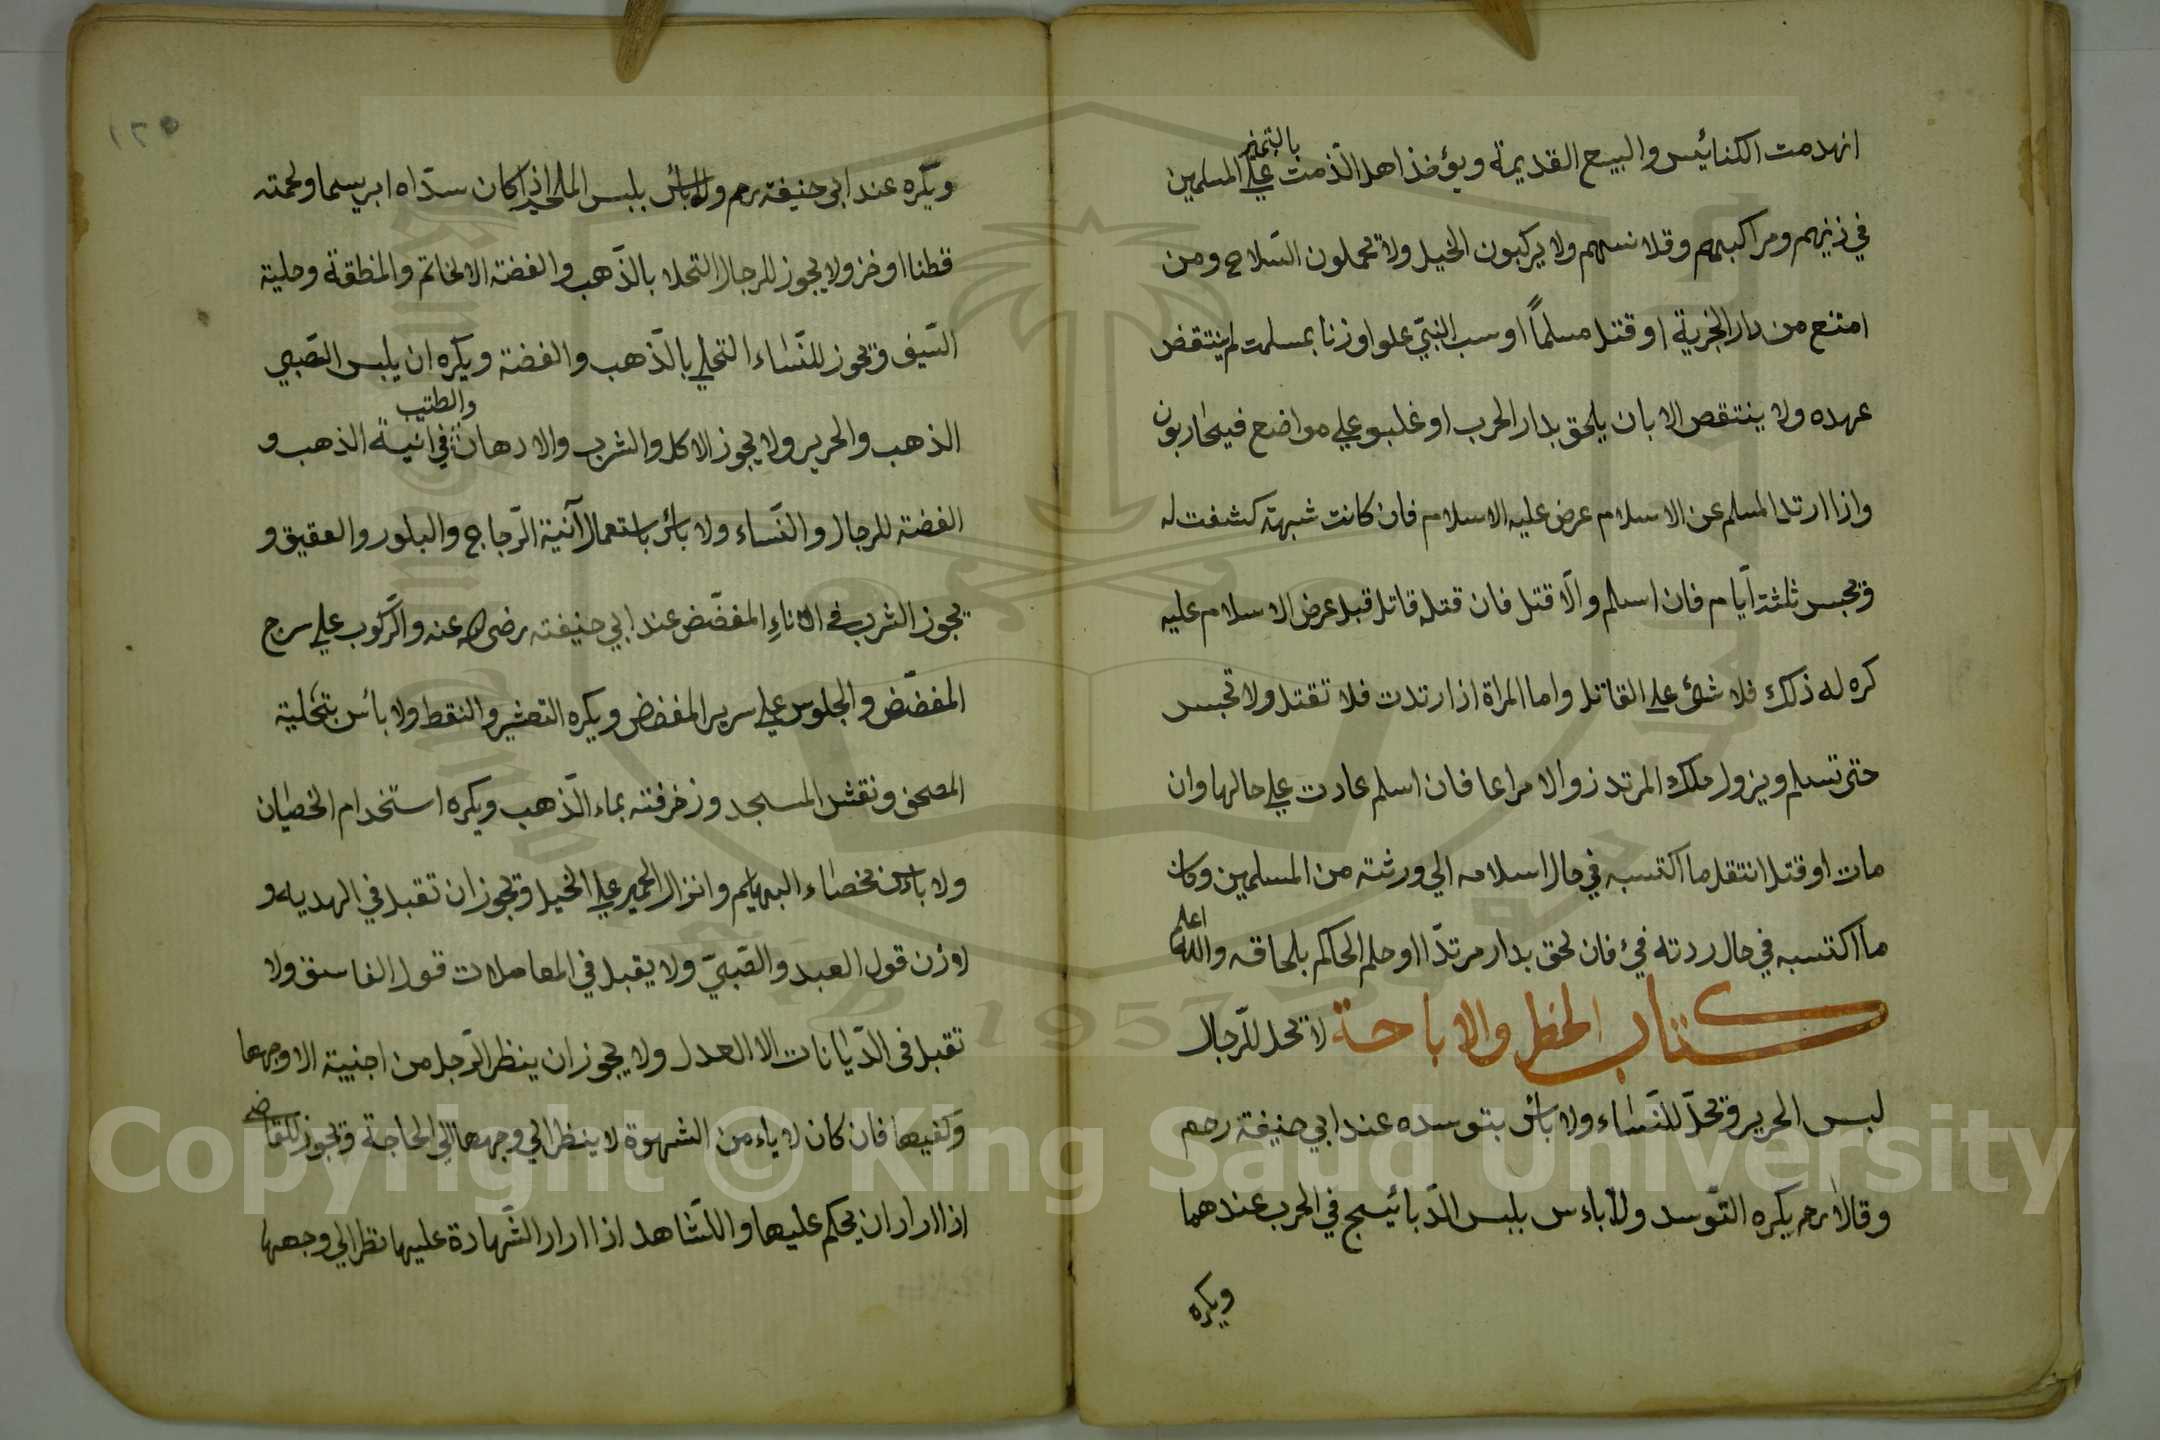 انهدمت الكنائيس والبيع القديمة ويؤخذ اهل الذمت بالتميز علي المسلمين
في زيهم ومراكبهم وقلانسهم ولا يركبون الخيل ولا تحملون السّلاح ومن
امتنع من دار الجزية او قتل مسلماً او سب النبيّ علو او زنا بمسلمت لم ينتقض
عهده ولا ينتقص الا بان يلحق بدار الحرب او غلبو علي مواضع فيحاربون
واذا ارتد المسلم عن الاسلام عرض عليه الاسلام فان كانت شبهته كشفت له
وتحبس ثلثة ايّام فان اسلم والّا قتل فان قتله قاتل قبل عرض الاسلام عليه
كره له ذلك فلا شئ علي القاتل واما المراة اذا ارتدت فلا تقتل ولا تحبس
حتي تسلم ويزول ملك المرتد زوالا مراعا فان اسلم عادت علي حالها وان
مات او قتل انتقل ما اكتسبه في حال اسلامه الي ورثته من المسلمين وكان
ما اكتسبه في حال ردته فئ فان لحق بدار مرتدّا او حلم الحاكم بلحاقه والله اعلم
كتاب الحظر والاباحة لا تحل للرّجال
لبس الحرير وتحلّ للنّساء ولا بائس بتوسده عند ابي حنيفة رحم
وقالا رحم يكره التّوسد ولا باءس بلبس الدّبائيج في الحرب عندهما
ويكره
١٢٥
ويكره عند ابي حنيفة رحم ولا بائس بلبس الملحم اذا كان سدّاه ابريسما ولحمته
قطنا او خز ولا يجوز للرجال التحلا بالذّهب والفضة الا لخاتم والمنطقة وحلية
السّيف وتجوز للنّساء التحلي بالذّهب والفضة ويكره ان يلبس الصّبي
الذهب والحرير ولا يجوز الاكل والشرب والادهان والطيب في آنية الذهب و
الفضة للرجال والنّساء ولا بائس باستعمال آنية الزّجاج والبلور والعقيق و
تجوز الشرب في الاناءِ المفضّض عند ابي حنيفته رضى الله عنه والرّكوب علي سرج
المفضّض والجلوس علي سرير المفضض ويكره التعشير والنقط ولا بأس بتحلية
المصحف ونقش المسجد وزخرفته بماء الذّهب ويكره استخدام الخصيان
ولا باءس بخصاء البهايم وانزال الحمير علي الخيل وتجوز ان تقبل في الهديه و
لاذن قول العبد والصّبيّ ولا يقبل في المعاملات قول الفاسق ولا
تقبل في الدّيانات الا العدل ولا يجوز ان ينظر الرّجل من اجنبية الا وجهها
وكفيها فان كان لا ياءمن الشهوة لا ينظر الي وجهها الي الحاجة وتجوز للقاضي
اذا اراد ان يحكم عليها واللشاهد اذا اراد الشّهادة عليها نظر الي وجهها
Copyright © King Saud University
1957